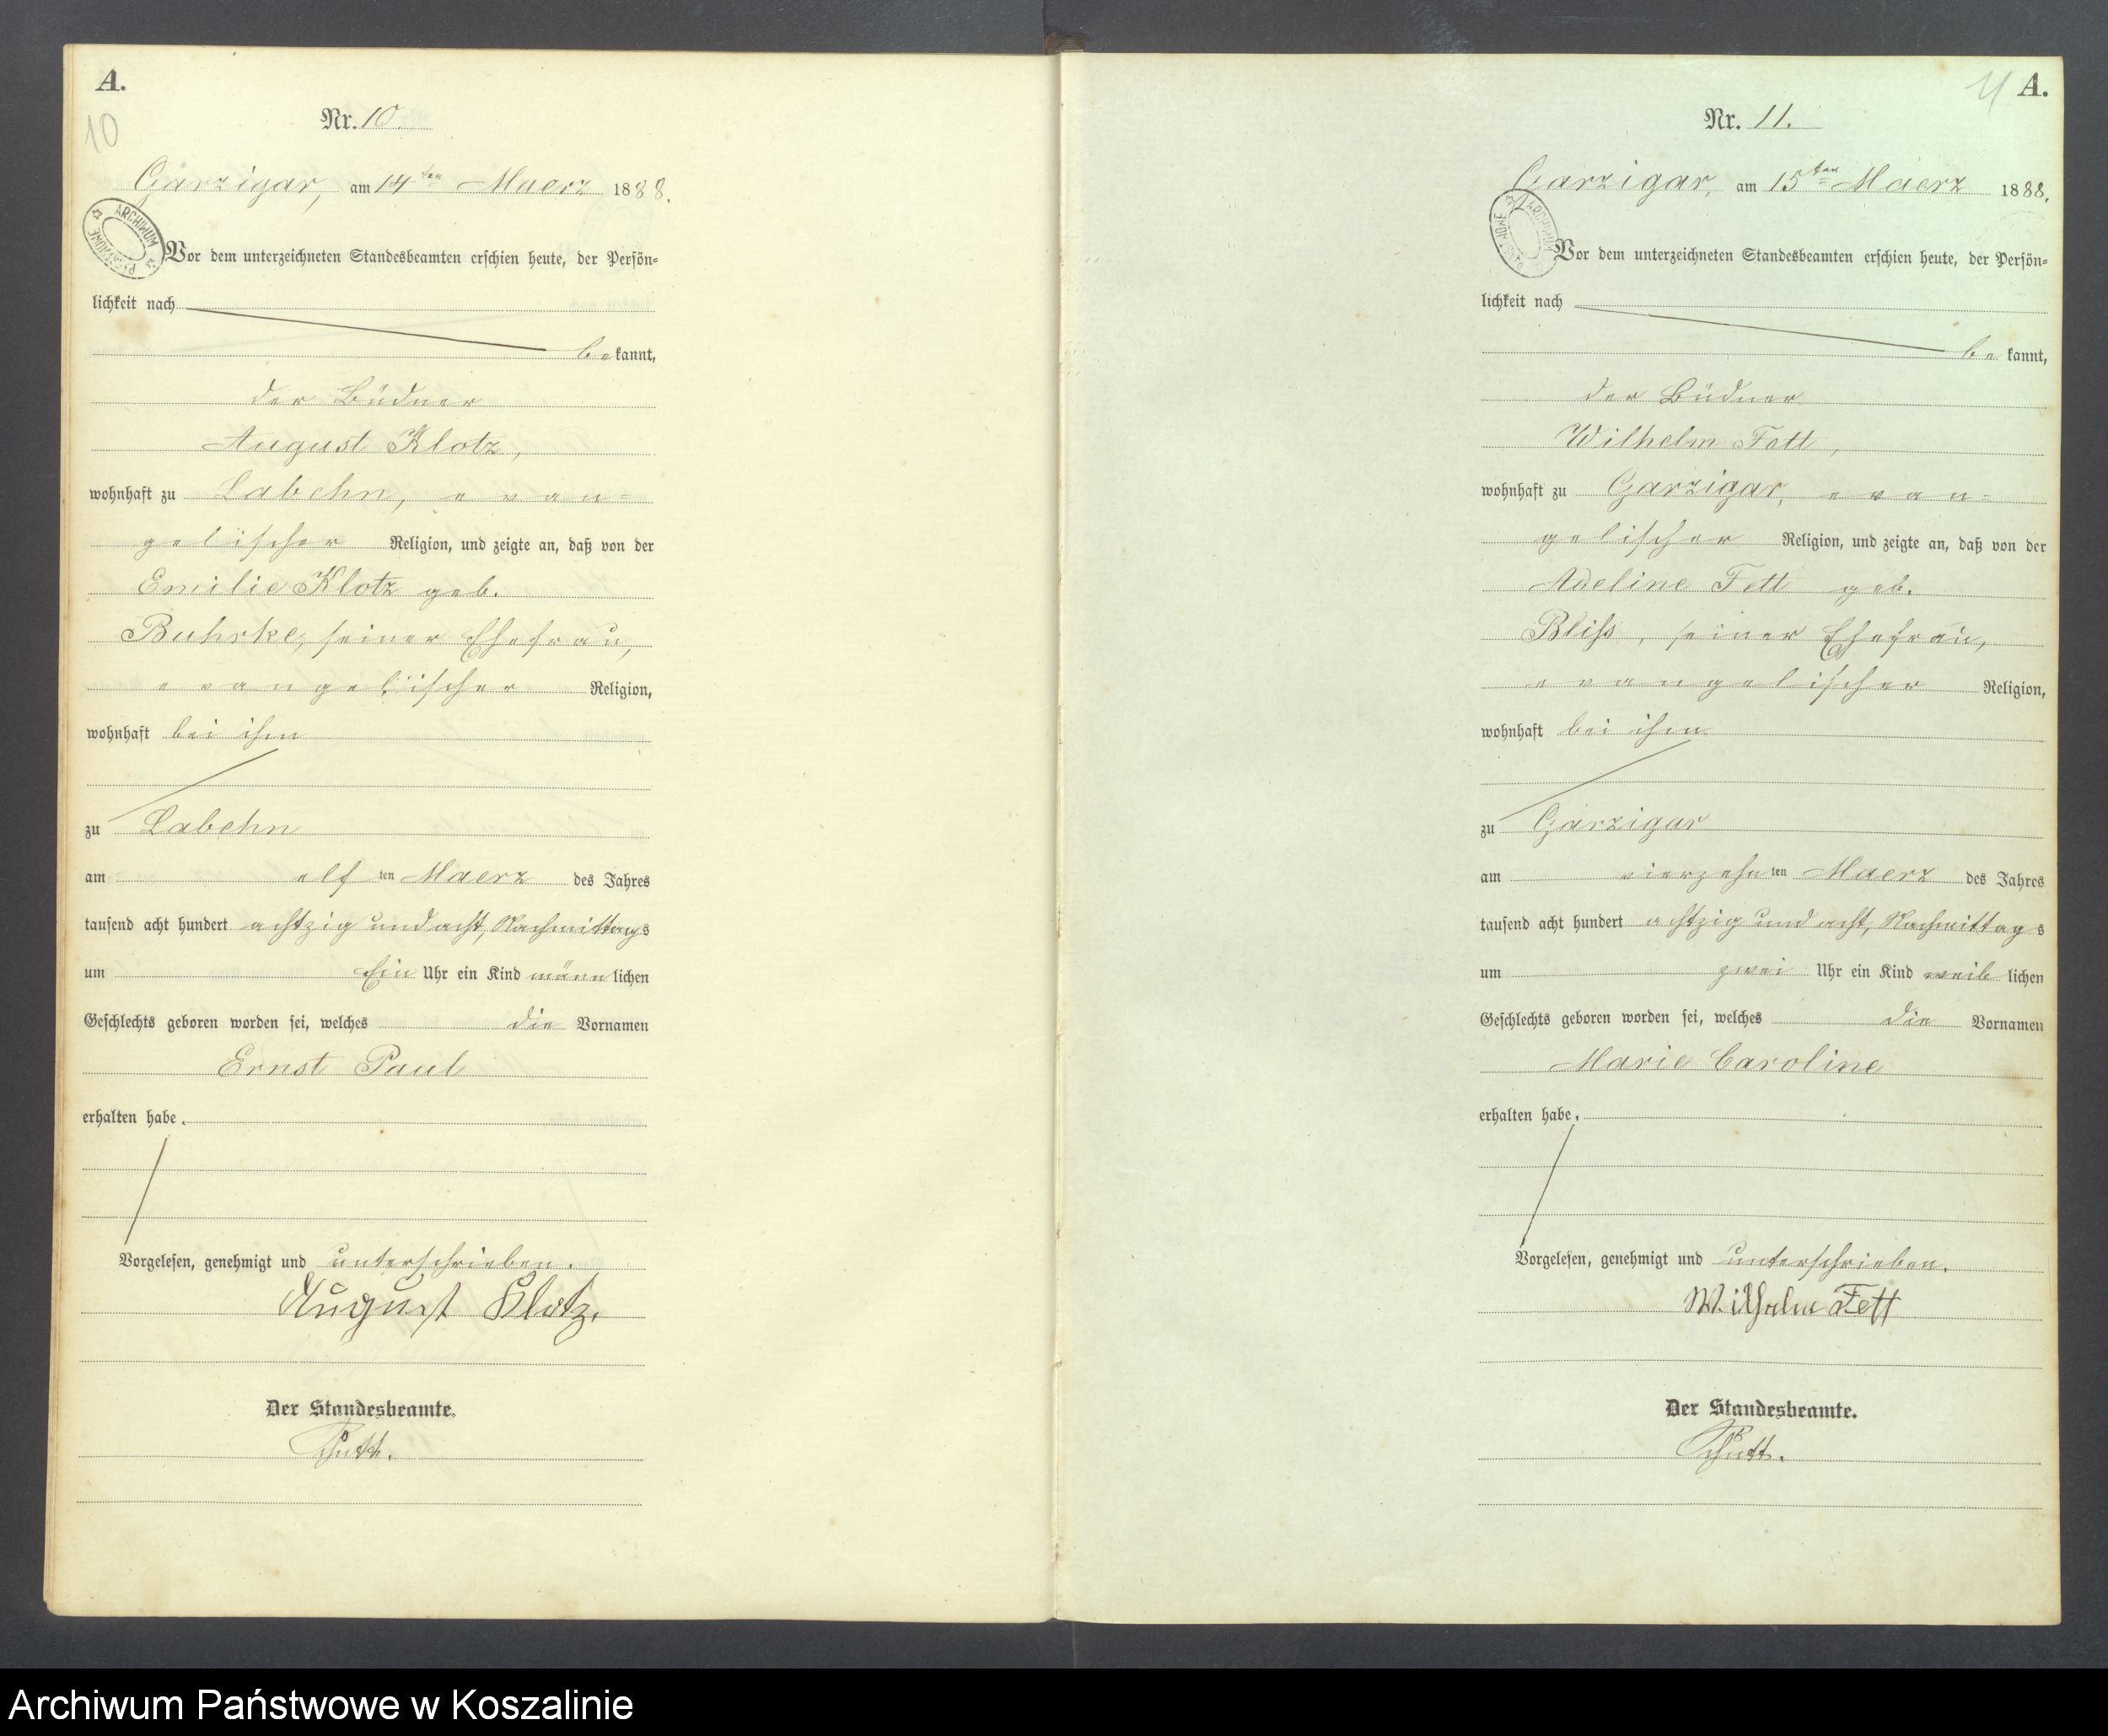 A.
10
Nr. 10.
Garzigar, am 14ten Maerz 1888.
ARCHIWUM PAŃSTWOWE
Vor dem unterzeichneten Standesbeamten erschien heute, der Persön-
lichkeit nach
bekannt,
der Büdner
August Klotz,
wohnhaft zu Labehn, evan-
gelischer Religion, und zeigte an, daß von der
Emilie Klotz geb.
Buhrke, seiner Ehefrau,
evangelischer Religion,
wohnhaft bei ihm
zu Labehn
am elf ten Maerz des Jahres
tausend acht hundert achtzig und acht, Nachmittags
um Ein Uhr ein Kind männlichen
Geschlechts geboren worden sei, welches die Vornamen
Ernst Paul
erhalten habe.
Vorgelesen, genehmigt und unterschrieben.
August Klotz.
Der Standesbeamte.
A.
11
Nr. 11.
Garzigar, am 15ten Maerz 1888.
ARCHIWUM PAŃSTWOWE
Vor dem unterzeichneten Standesbeamten erschien heute, der Persön-
lichkeit nach
bekannt,
der Büdner
Wilhelm Fett,
wohnhaft zu Garzigar, evan-
gelischer Religion, und zeigte an, daß von der
Adeline Fett geb.
Bliss, seiner Ehefrau,
evangelischer Religion,
wohnhaft bei ihm
zu Garzigar
am vierzehn ten Maerz des Jahres
tausend acht hundert achtzig und acht, Nachmittags
um zwei Uhr ein Kind weiblichen
Geschlechts geboren worden sei, welches die Vornamen
Marie Caroline
erhalten habe.
Vorgelesen, genehmigt und unterschrieben.
Wilhelm Fett
Der Standesbeamte.
Archiwum Państwowe w Koszalinie